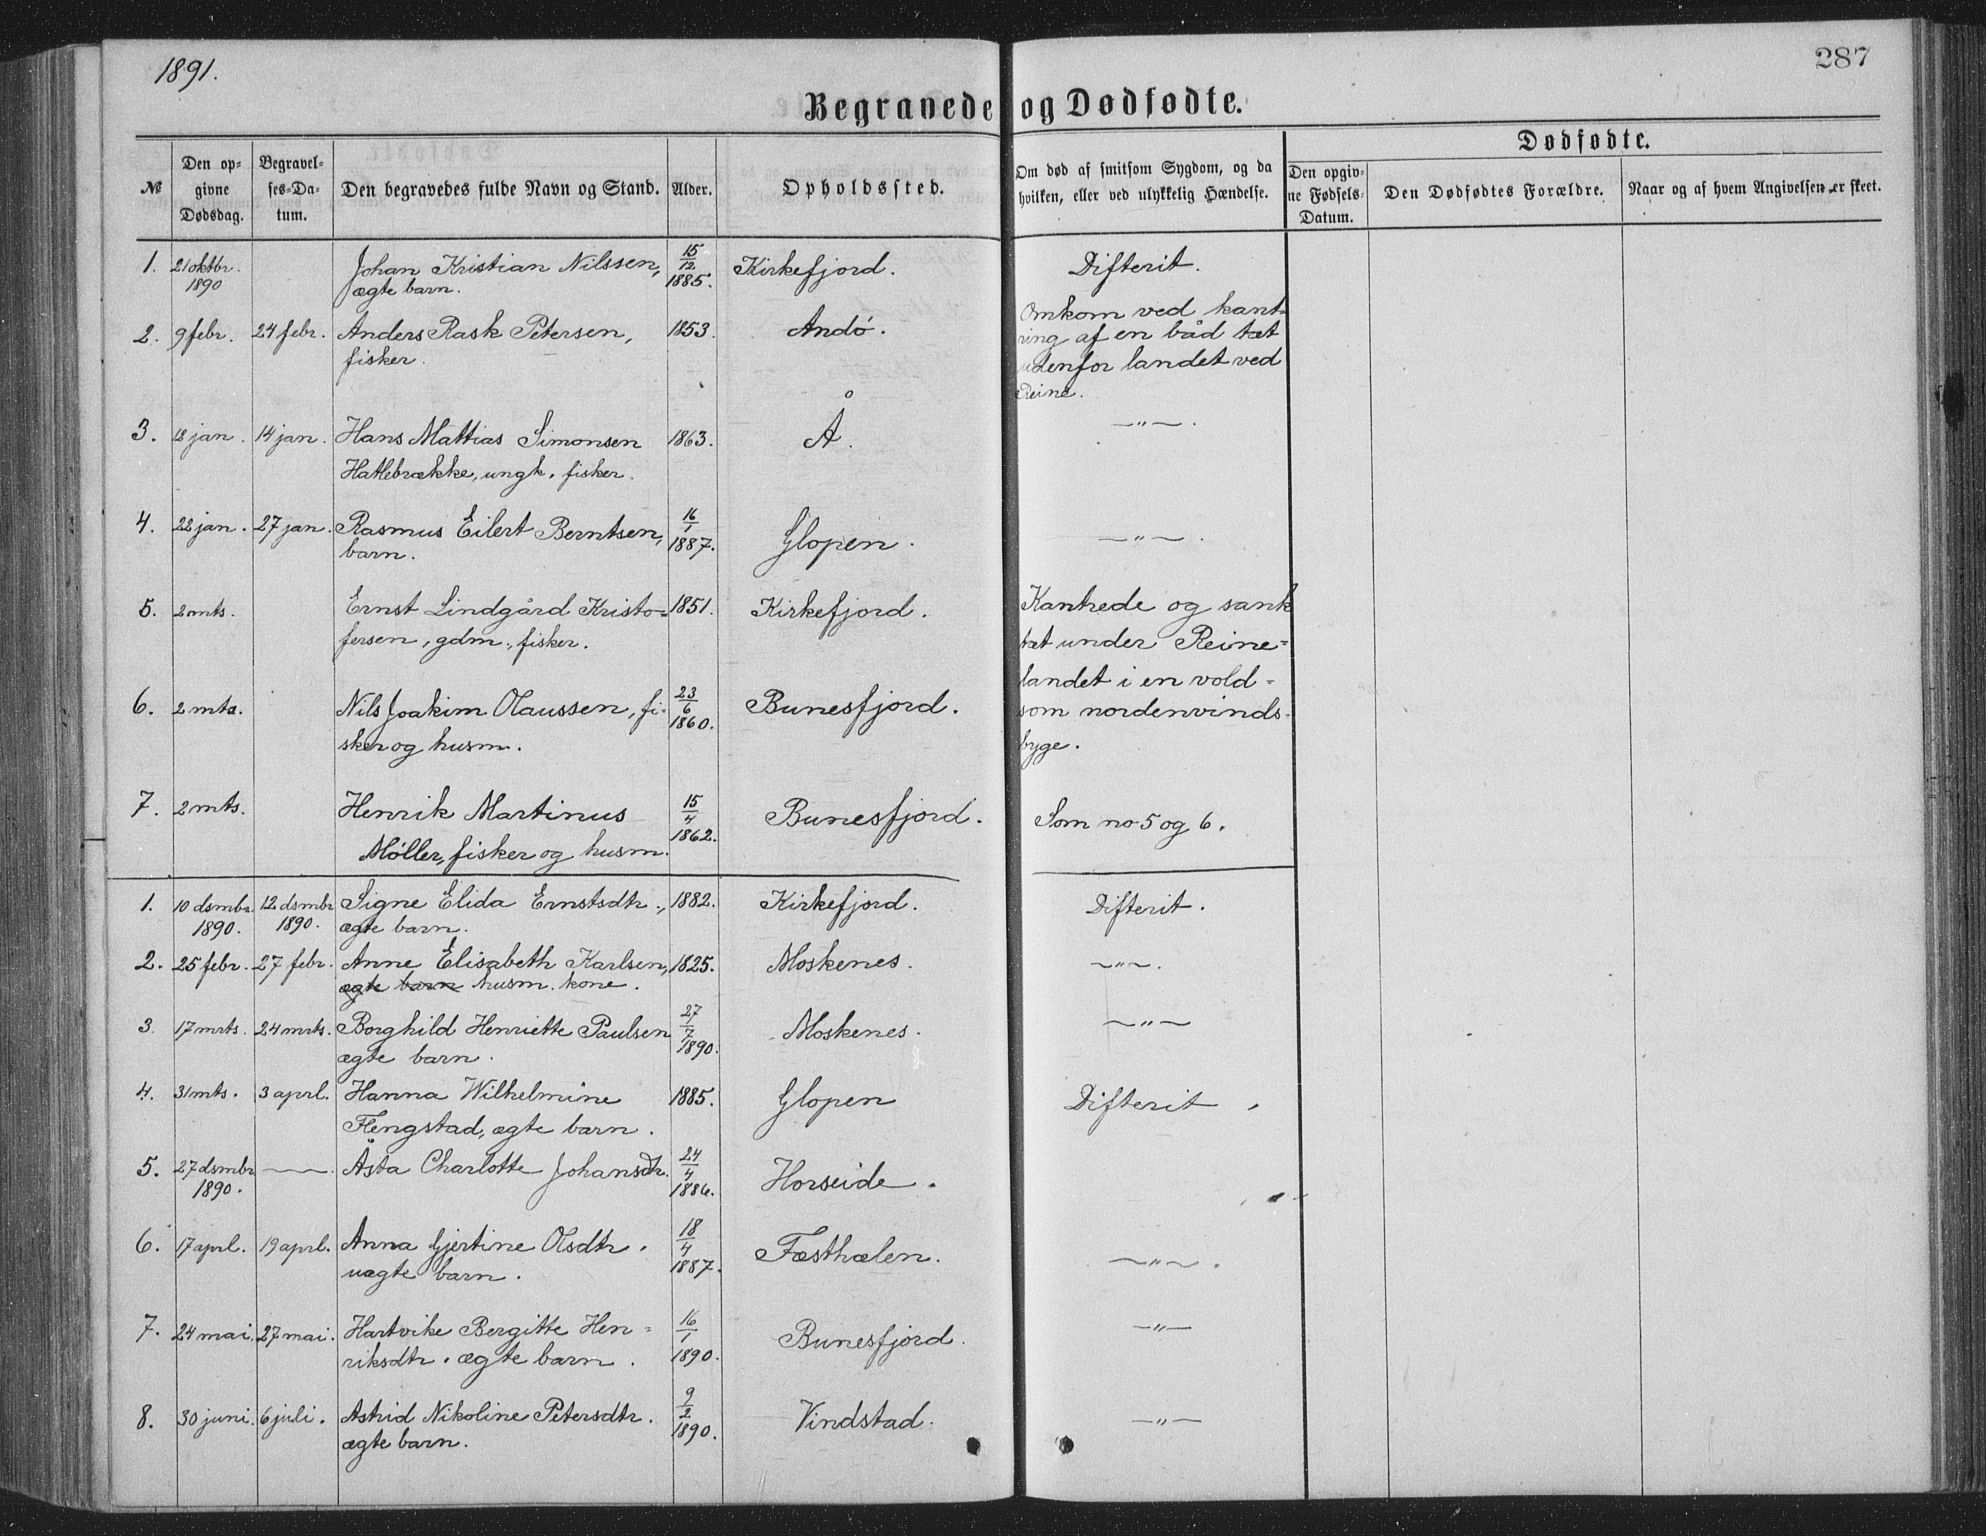 1891.
287
Begravede og Dødfødte.
Dødfødte.
№ Den op- Begravel- Den begravedes fulde Navn og Stand. Alder. Opholdssted. Om død af smitsom Sygdom, og da Den opgiv- Den Dødfødtes Forældre. Naar og af hvem Angivelsen er skeet.
givne ses-Da- hvilken, eller ved ulykkelig Hændelse. ne Fødsels-
Dødsdag. tum. Datum.
1. 21 oktbr. Johan Kristian Nilssen, 15/12 Kirkefjord. Difterit.
1890 ægte barn. 1885.
2. 9 febr. 24 febr. Anders Rask Petersen, 1853. Andø. Omkom ved kant-
fisker. ring af en båd tæt
udenfor landet ved
Reine.
3. 8 jan. 14 jan. Hans Mattias Simonsen 1863. Å. —"—.
Hatlebrække, ungk. fisker.
4. 22 jan. 27 jan. Rasmus Eilert Berntsen, 16/1 Glopen. —"—.
barn. 1887.
5. 2 mts. Ernst Lindgård Kristo- 1851. Kirkefjord. Kantrede og sank
fersen, gdm., fisker. tæt under Reine-
landet i en vold-
6. 2 mts. Nils Joakim Olaussen, fi- 23/6 Bunesfjord. som nordenvinds-
sker og husm. 1860. byge.
7. 2 mts. Henrik Martinus 15/4 Bunesfjord. Som no 5 og 6.
Møller, fisker og husm. 1862.
1. 10 dsmbr. 12 dsmbr Signe Elida Ernstsdtr., 1882. Kirkefjord. Difterit.
1890. 1890. ægte barn.
2. 25 febr. 27 febr. Anne Elisabeth Karlsen, 1825. Moskenes. —"—.
ægte barn husm. kone.
3. 17 mrts. 24 mrts. Borghild Henriette Paulsen 27/7 Moskenes. —"—
ægte barn. 1890.
4. 31 mts. 3 aprl. Hanna Wilhelmine 1885. Glopen Difterit.
Flengstad, ægte barn.
5. 27 dsmbr —. Åsta Charlotte Johansdtr. 24/4 Horseide.
1890. 1886.
6. 17 aprl. 19 aprl. Anna Gjertine Olsdtr. 18/4 Fæsthælen. —"—.
uægte barn. 1887.
7. 24 mai. 27 mai. Hartvike Bergitte Hen- 16/1 Bunesfjord. —"—
riksdtr. ægte barn. 1890.
8. 30 juni. 6 juli. Astrid Nikoline Petersdtr. 9/2 Vindstad. —"—
ægte barn. 1890.